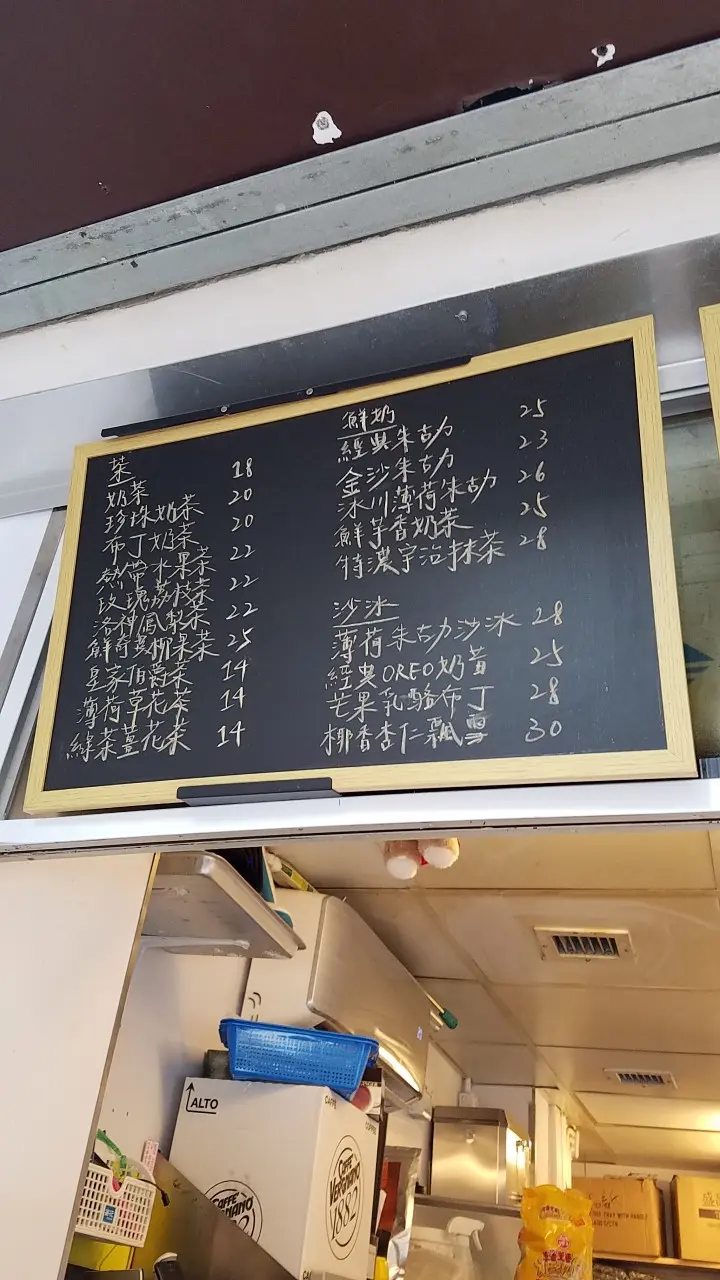 茶
奶茶 18
珍珠奶茶 20
布丁奶茶 20
熱帶水果茶 22
玫瑰荔枝茶 22
洛神鳳梨茶 22
鮮奇異柳果茶 25
皇家伯爵茶 14
薄荷草花茶 14
綠茶薑花茶 14
鮮奶
經典朱古力 25
金沙朱古力 23
冰川薄荷朱古力 26
鮮芋香奶茶 25
特濃宇治抹茶 28
沙冰
薄荷朱古力沙冰 28
經典OREO奶黃 25
芒果乳酪布丁 28
椰香杏仁飄雪 30
ALTO
CAFFÈ
VERGNANO
1882
CAFFÈ
VERGNANO